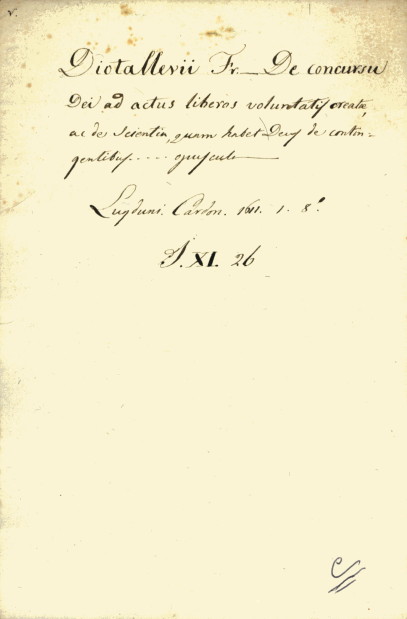 v.
Diotallevii Fr. — De concursu
Dei ad actus liberos voluntatis creatæ,
ac de Scientia, quam habet Deus de contin-
gentibus .... opuscula —
Lugduni. Cardon. 1611. 1. 8.º
J. XI. 26